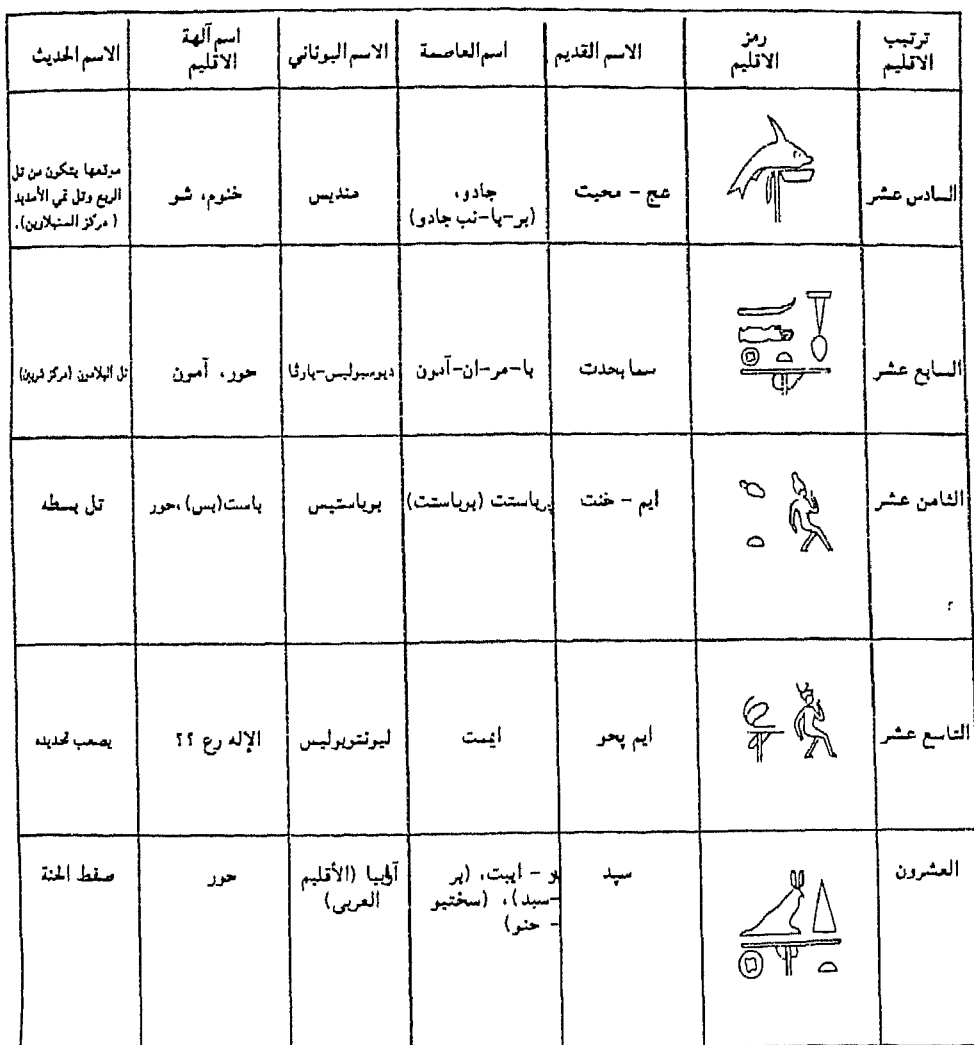 ترتيب الاقليم
رمز الاقليم
الاسم القديم
اسم العاصمة
الاسم اليوناني
اسم آلهة الاقليم
الاسم الحديث
السادس عشر
عج - محيت
جادو،
(بر-با-نب جادو)
منديس
خنوم، شو
موقعها يتكون من تل
الربع وتل تمي الأمديد
(مركز السنبلاوين).
السابع عشر
سما بحدت
با-مر-ان-آمون
ديوسبوليس-بارفا
حور، آمون
تل البلامون (مركز شربين)
الثامن عشر
ايم - خنت
برباستت (بوباستت)
بوباستيس
باست(بس)،حور
تل بسطه
؟
التاسع عشر
ايم پحو
ايمت
ليونتوبوليس
الإله رع ؟؟
يصعب تحديده
العشرون
سپد
و - ايبت، (بر
-سبد)، (سختيو
- حنو)
آرابيا (الأقليم
العربى)
حور
صفط الحنة